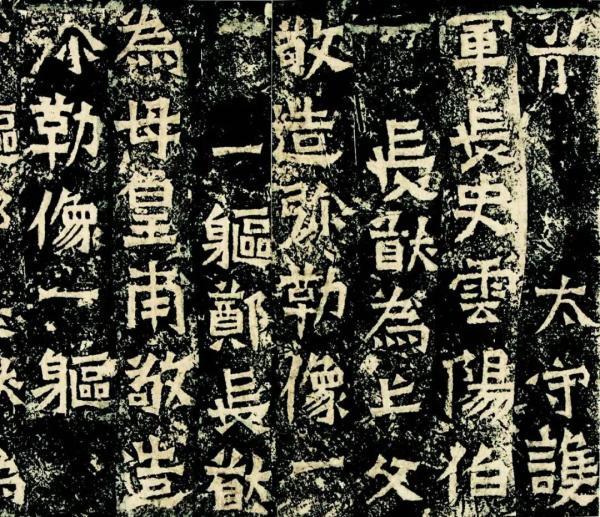 太守護
軍長史雲陽伯
長猷為亡父
敬造弥勒像一
一軀鄭長猷
為母皇甫敬造
弥勒像一軀